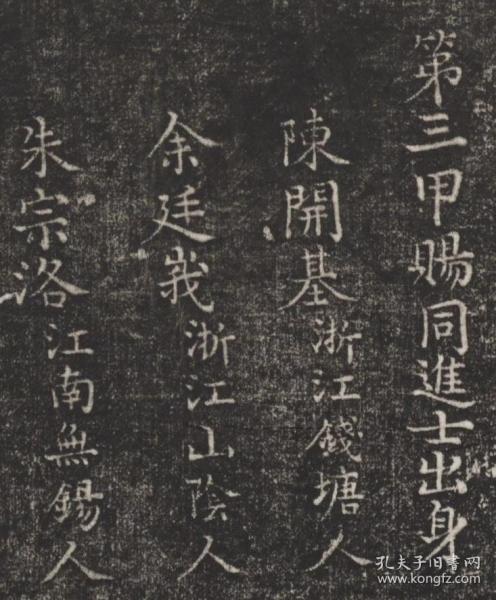 第三甲賜同進士出身
陳開基浙江錢塘人
余廷峩浙江山陰人
朱宗洛江南無錫人
孔夫子旧书网
www.kongfz.com